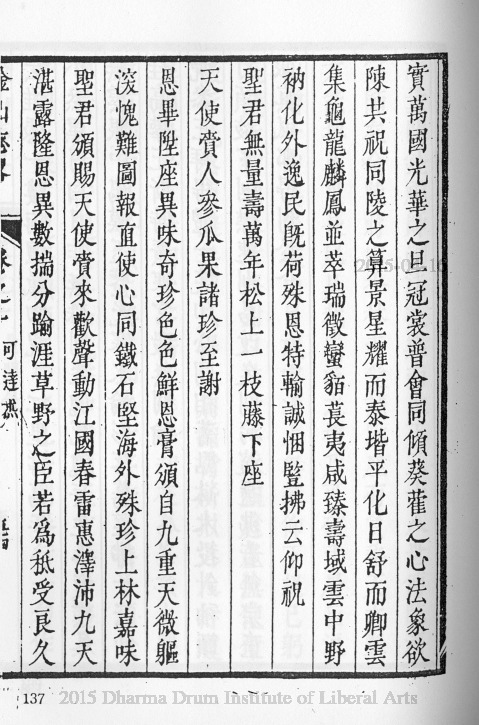 實萬國光華之旦冠裳普會同傾葵藿之心法象欲
陳共祝同陵之算景星耀而泰堦平化日舒而卿雲
集龜龍麟鳳並萃瑞徵蠻貊萇夷咸臻壽域雲中野
衲化外逸民旣荷殊恩特輸誠悃豎拂云仰祝
聖君無量壽萬年松上一枝藤下座
天使賷人參瓜果諸珍至謝
恩畢陞座異味奇珍色色鮮恩膏頒自九重天微軀
深愧難圖報直使心同鐵石堅海外殊珍上林嘉味
聖君頒賜天使賷來歡聲動江國春雷惠澤沛九天
湛露隆恩異數揣分踰涯草野之臣若爲祗受良久
卷之一 可達
137
2015 Dharma Drum Institute of Liberal Arts